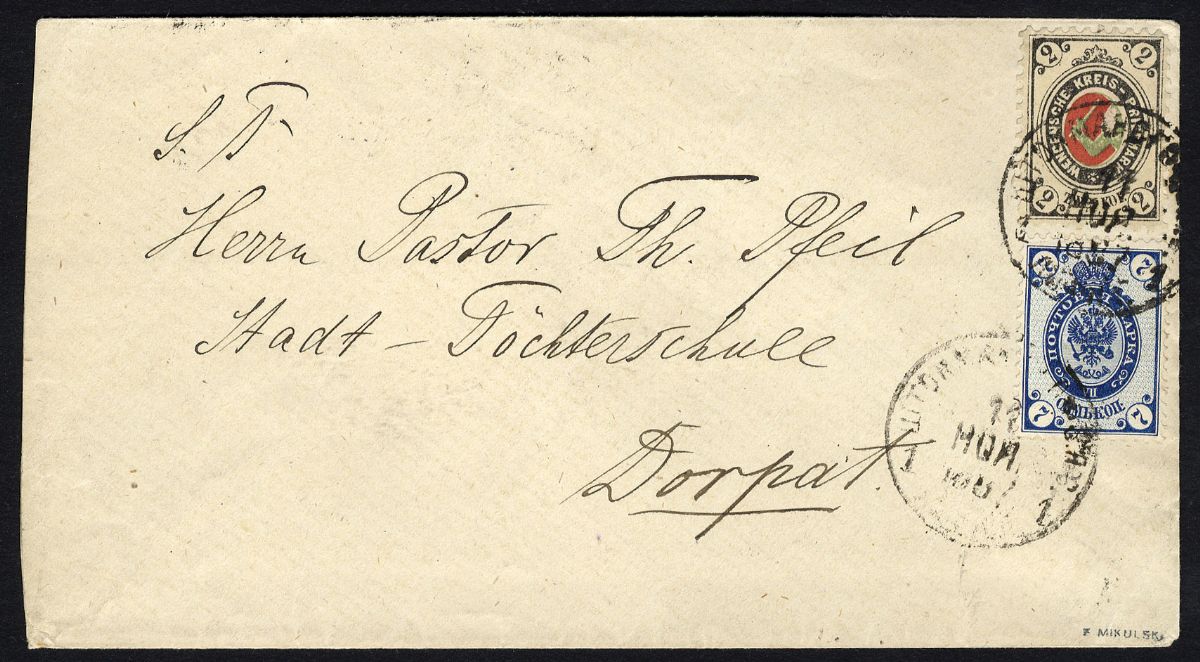 S. T.
Herrn Pastor Th. Pfeil
Stadt – Töchterschule
Dorpat.
2 2
WENDENSCHE · KREIS - PRIEFMARKE
2 2
7 7
ПОЧТОВАЯ МАРКА
VII
СЕМЬ КОП.
7 7
11
НОЯ
1
12
НОЯ.
1887
1 1
F MIKULSKI